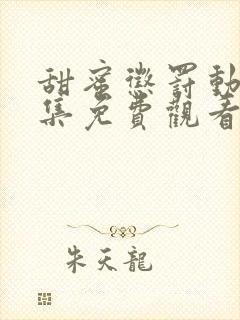 甜蜜懲罰動
集免費觀看
朱天龍